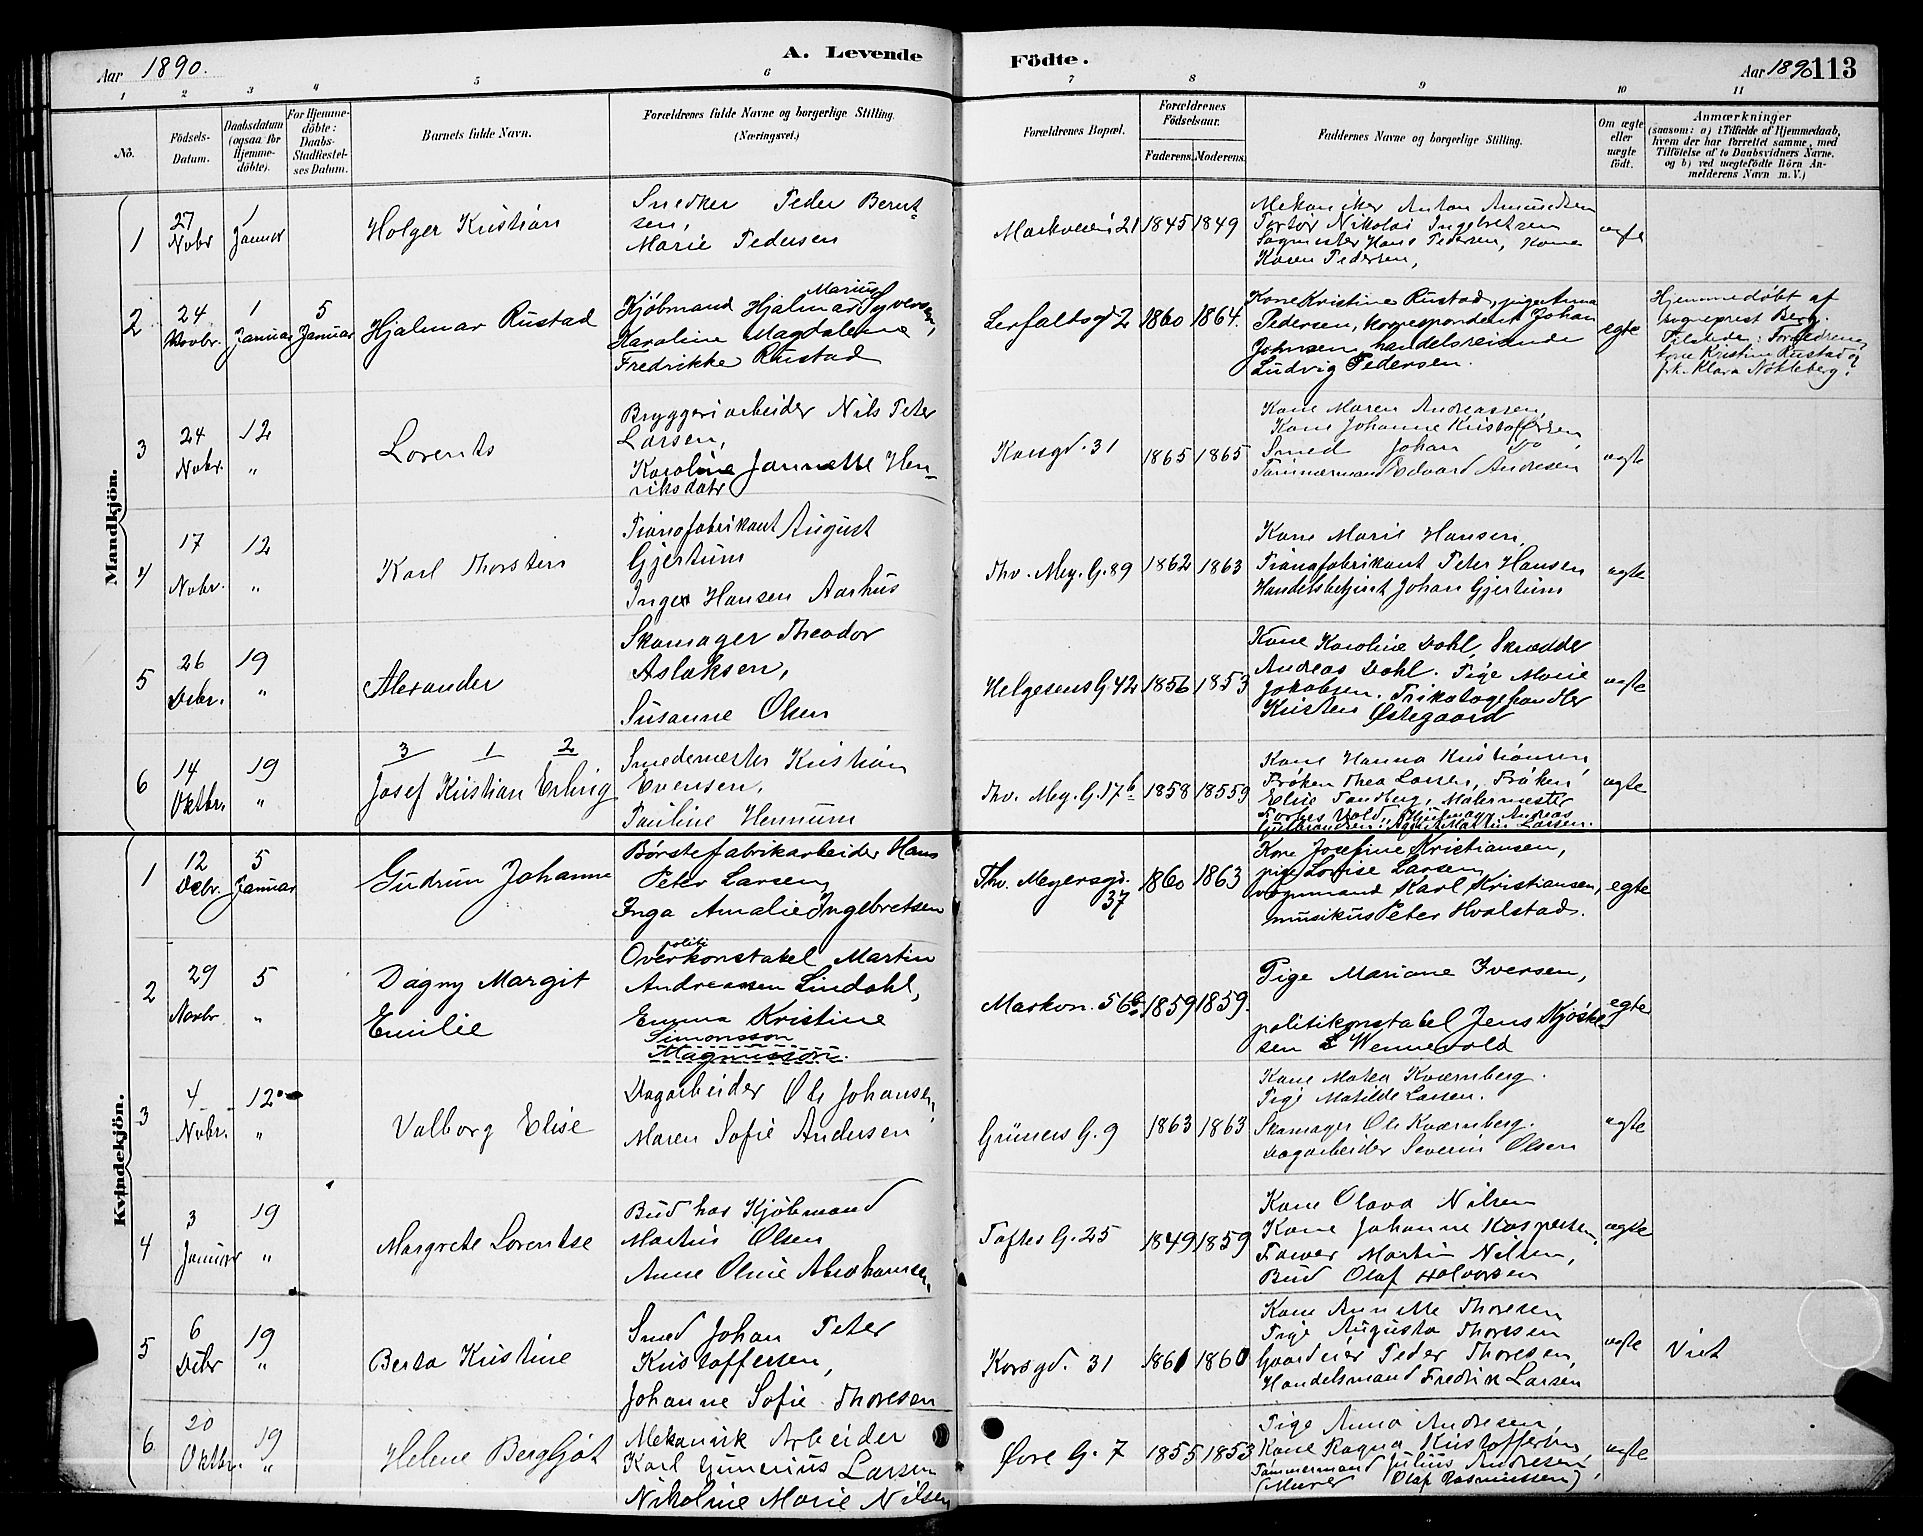 Aar 1890.
A. Levende
Födte.
Aar 1890 113
1 2 3 4 5 6 7 8 9 10 11
No.
Födsels-Datum.
Daabsdatum (ogsaa for Hjemme-döbte).
For Hjemme-döbte: Daabs-Stadfæstel-ses Datum.
Barnets fulde Navn.
Forældrenes fulde Navne og borgerlige Stilling. (Næringsvei.)
Forældrenes Bopæl.
Forældrenes Födselsaar.
Faderens. Moderens.
Faddernes Navne og borgerlige Stilling.
Om ægte eller uægte födt.
Anmærkninger
(saasom: a) i Tilfælde af Hjemmedaab,
hvem der har forrettet samme, med
Tilföielse af to Daabsvidners Navne.
og b) ved uægtefödte Börn An-
melderens Navn m. V.)
Mandkjön.
1
27 Novbr
1 Januar
Holger Kristian
Snedker Peder Bernt-
sen,
Marie Pedersen
Markveien 21
1845 1849
Mekaniker Anton Amundsen
Nikolai Ingebretsen
Sagmester Hans Pedersen, Kone
Karen Pedersen,
ægte
2
24 Novbr.
1 Januar
5 Januar
Hjalmar Rustad
Kjöbmand Hjalmar Marius Syversen,
Karoline Magdalene
Fredrikke Rustad
Lerfaldsgd 2
1860 1864.
Kone Kristine Rustad, pige Anna
Pedersen, Korrespondent Johan
Johnsen, handelsreisende
Ludvig Pedersen.
egte
Hjemmedøbt af
sogneprest Berg.
Tilstede: Forældrene,
kone Kristine Rustad og
frk. Klara Nökleberg.
3
24 Nobr.
12 "
Lorents
Bryggeriarbeider Nils Peter
Larsen,
Karoline Jannette Hen-
riksdatr
Korsgd. 31
1865 1865
Kone Maren Andreassen,
Kone Johanne Kristoffersen,
Smed Johan do
Tømmermand Edvard Andresen
ægte
4
17 Nobr.
12 "
Karl Thorsten
Pianofabrikant August
Gjertum
Inger Hansen Aarhus
Thv. Mey. G. 89
1862 1863
Kone Marie Hansen,
Pianofabrikant Peter Hansen
Handelsbetjent Johan Gjertum
ægte
5
26 Debr.
19 "
Alexander
Skomager Theodor
Aslaksen,
Susanne Olsen
Helgesens G. 42
1856 1853
Kone Karoline Dahl, Skrædder
Andreas Dahl. Pige Marie
Jakobsen. Trikotagehandler
Kristen Østegaard
ægte
6
14 Oktbr.
19 "
3 1 2
Josef Kristian Erling
Smedemester Kristian
Evensen,
Pauline Hennum
Thv. Mey. G. 17 b
1858 18559
Kone Hanna Kristiansen,
Frøken Thea Larsen, Frøken
Elise Sandberg, Malermester
Andreas
Larsen.
ægte
Kvindekjön.
1
12 Debr.
5 Januar
Gudrun Johanne
Børstefabrikarbeider Hans
Peter Larsen,
Inga Amalie Ingebretsen
Thv. Meyersgd.
37
1860 1863
Kone Josefine Kristiansen,
pige Lovise Larsen,
vognmand Karl Kristiansen,
musikus Peter Hvalstad.
egte
2
29 Novbr
5 "
Dagny Margit
Emilie
Overpolitikonstabel Martin
Andreassen Lindahl,
Emma Kristine
Simonsson
Magnusson.
Markvn. 56 b
1859 1859.
Pige Mariane Iversen,
politikonstabel Jens
sen Wennevold
egte
3
4 Nobr.
12 "
Valborg Elise
Dagarbeider Ole Johansen,
Maren Sofie Andersen
Grüners G. 9
1863 1863
Kone Matea Kværnberg.
Pige Matilde Larsen.
Skomager Ole Kværnberg.
Dagarbeider Severin Olsen
ægte
4
3 Januar
19 "
Margrete Lorentse
Bud hos Kjöbmand
Martin Olsen
Anne Oline Abrahamsen,
Toftes G. 25
1849 1859
Kone Olava Nilsen
Kone Johanne Kaspersen,
Farver Martin Nilsen,
Bud Olaf Halvorsen
ægte
5
6 Debr
19 "
Berta Kristine
Smed Johan Peter
Kristoffersen,
Johanne Sofie Thoresen
Korsgd. 31
1861 1860
Kone Annette Thoresen
Pige Augusta Thoresen
Gaardeier Peder Thoresen,
Handelsmand Fredrik Larsen
ægte
6
20 Oktbr.
19 "
Helene Bergljot
Mekanisk Arbeider
Karl Gunerius Larsen
Nikoline Marie Nilsen
Øvre G. 7
1855 1853
Pige Anna Andresen,
Kone Ragna Kristoffersen,
Tømmermand Julius Andresen,
(Murer Olaf Rasmussen)
ægte